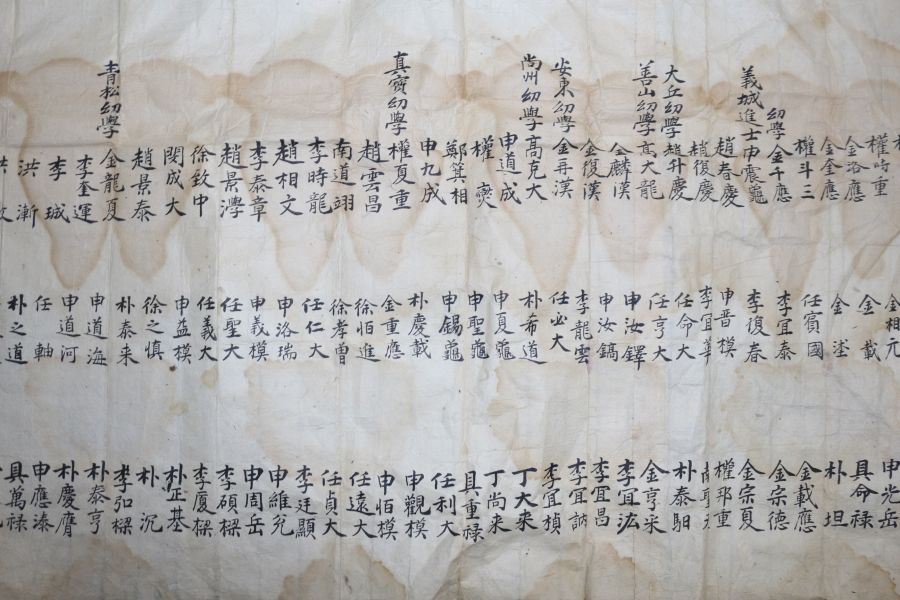 權時重
金洛應
金奎應
權斗三
幼學金千應
義城進士申慶龜
趙春慶
趙復慶
大丘幼學趙升慶
善山幼學高大龍
金麟漢
金復漢
安東幼學金再漢
尚州幼學高克大
申道成
權
鄭箕相
申九成
真寶幼學權夏重
趙雲昌
南道翊
李時龍
趙相文
李泰章
趙景
徐致中
閔成大
趙景泰
青松幼學金龍夏
李奎運
李珹
洪漸
金相元
金載
金
任賓國
李宜泰
李復春
申晋模
李宜華
任命大
任亨大
申汝鐸
申汝鎬
李龍雲
任必大
朴希道
申夏龜
申聖龜
申錫龜
朴慶載
金重應
徐恒進
徐孝曾
任仁大
申洛瑞
申義模
任聖大
任義大
申益模
徐之愼
朴泰来
申道海
申道河
任軸
朴之道
申光岳
具命禄
朴坦
金載應
金宗德
金宗夏
權邦重
朴泰馹
金亨采
李宜浤
李宜昌
李宜訥
李宜楨
丁大来
丁尚来
具重禄
任利大
申觀模
申恒模
任遠大
任貞大
李廷顯
申維兊
申周岳
李碩樑
李厦樑
朴正基
朴沉
李弘樑
朴泰亨
朴慶膺
申應
具萬禄